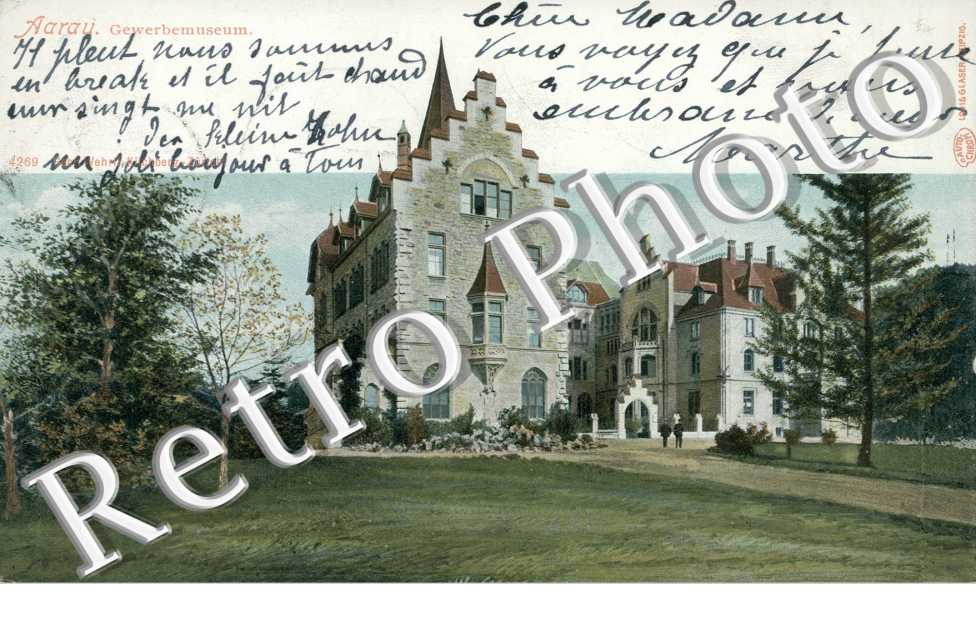 Aarau. Gewerbemuseum.
Il pleut nous sommes
en break et il fait chaud
eur singt me nit
der kleine Kohn
un joli bonjour à Tous
4269 Kilchberg Zürich
Chère Madame
Vous voyez que j'
à vous et vous
embrasse
Marthe
LOUIS GLASER LEIPZIG.
AUTO-
CHROM
Retro Photo